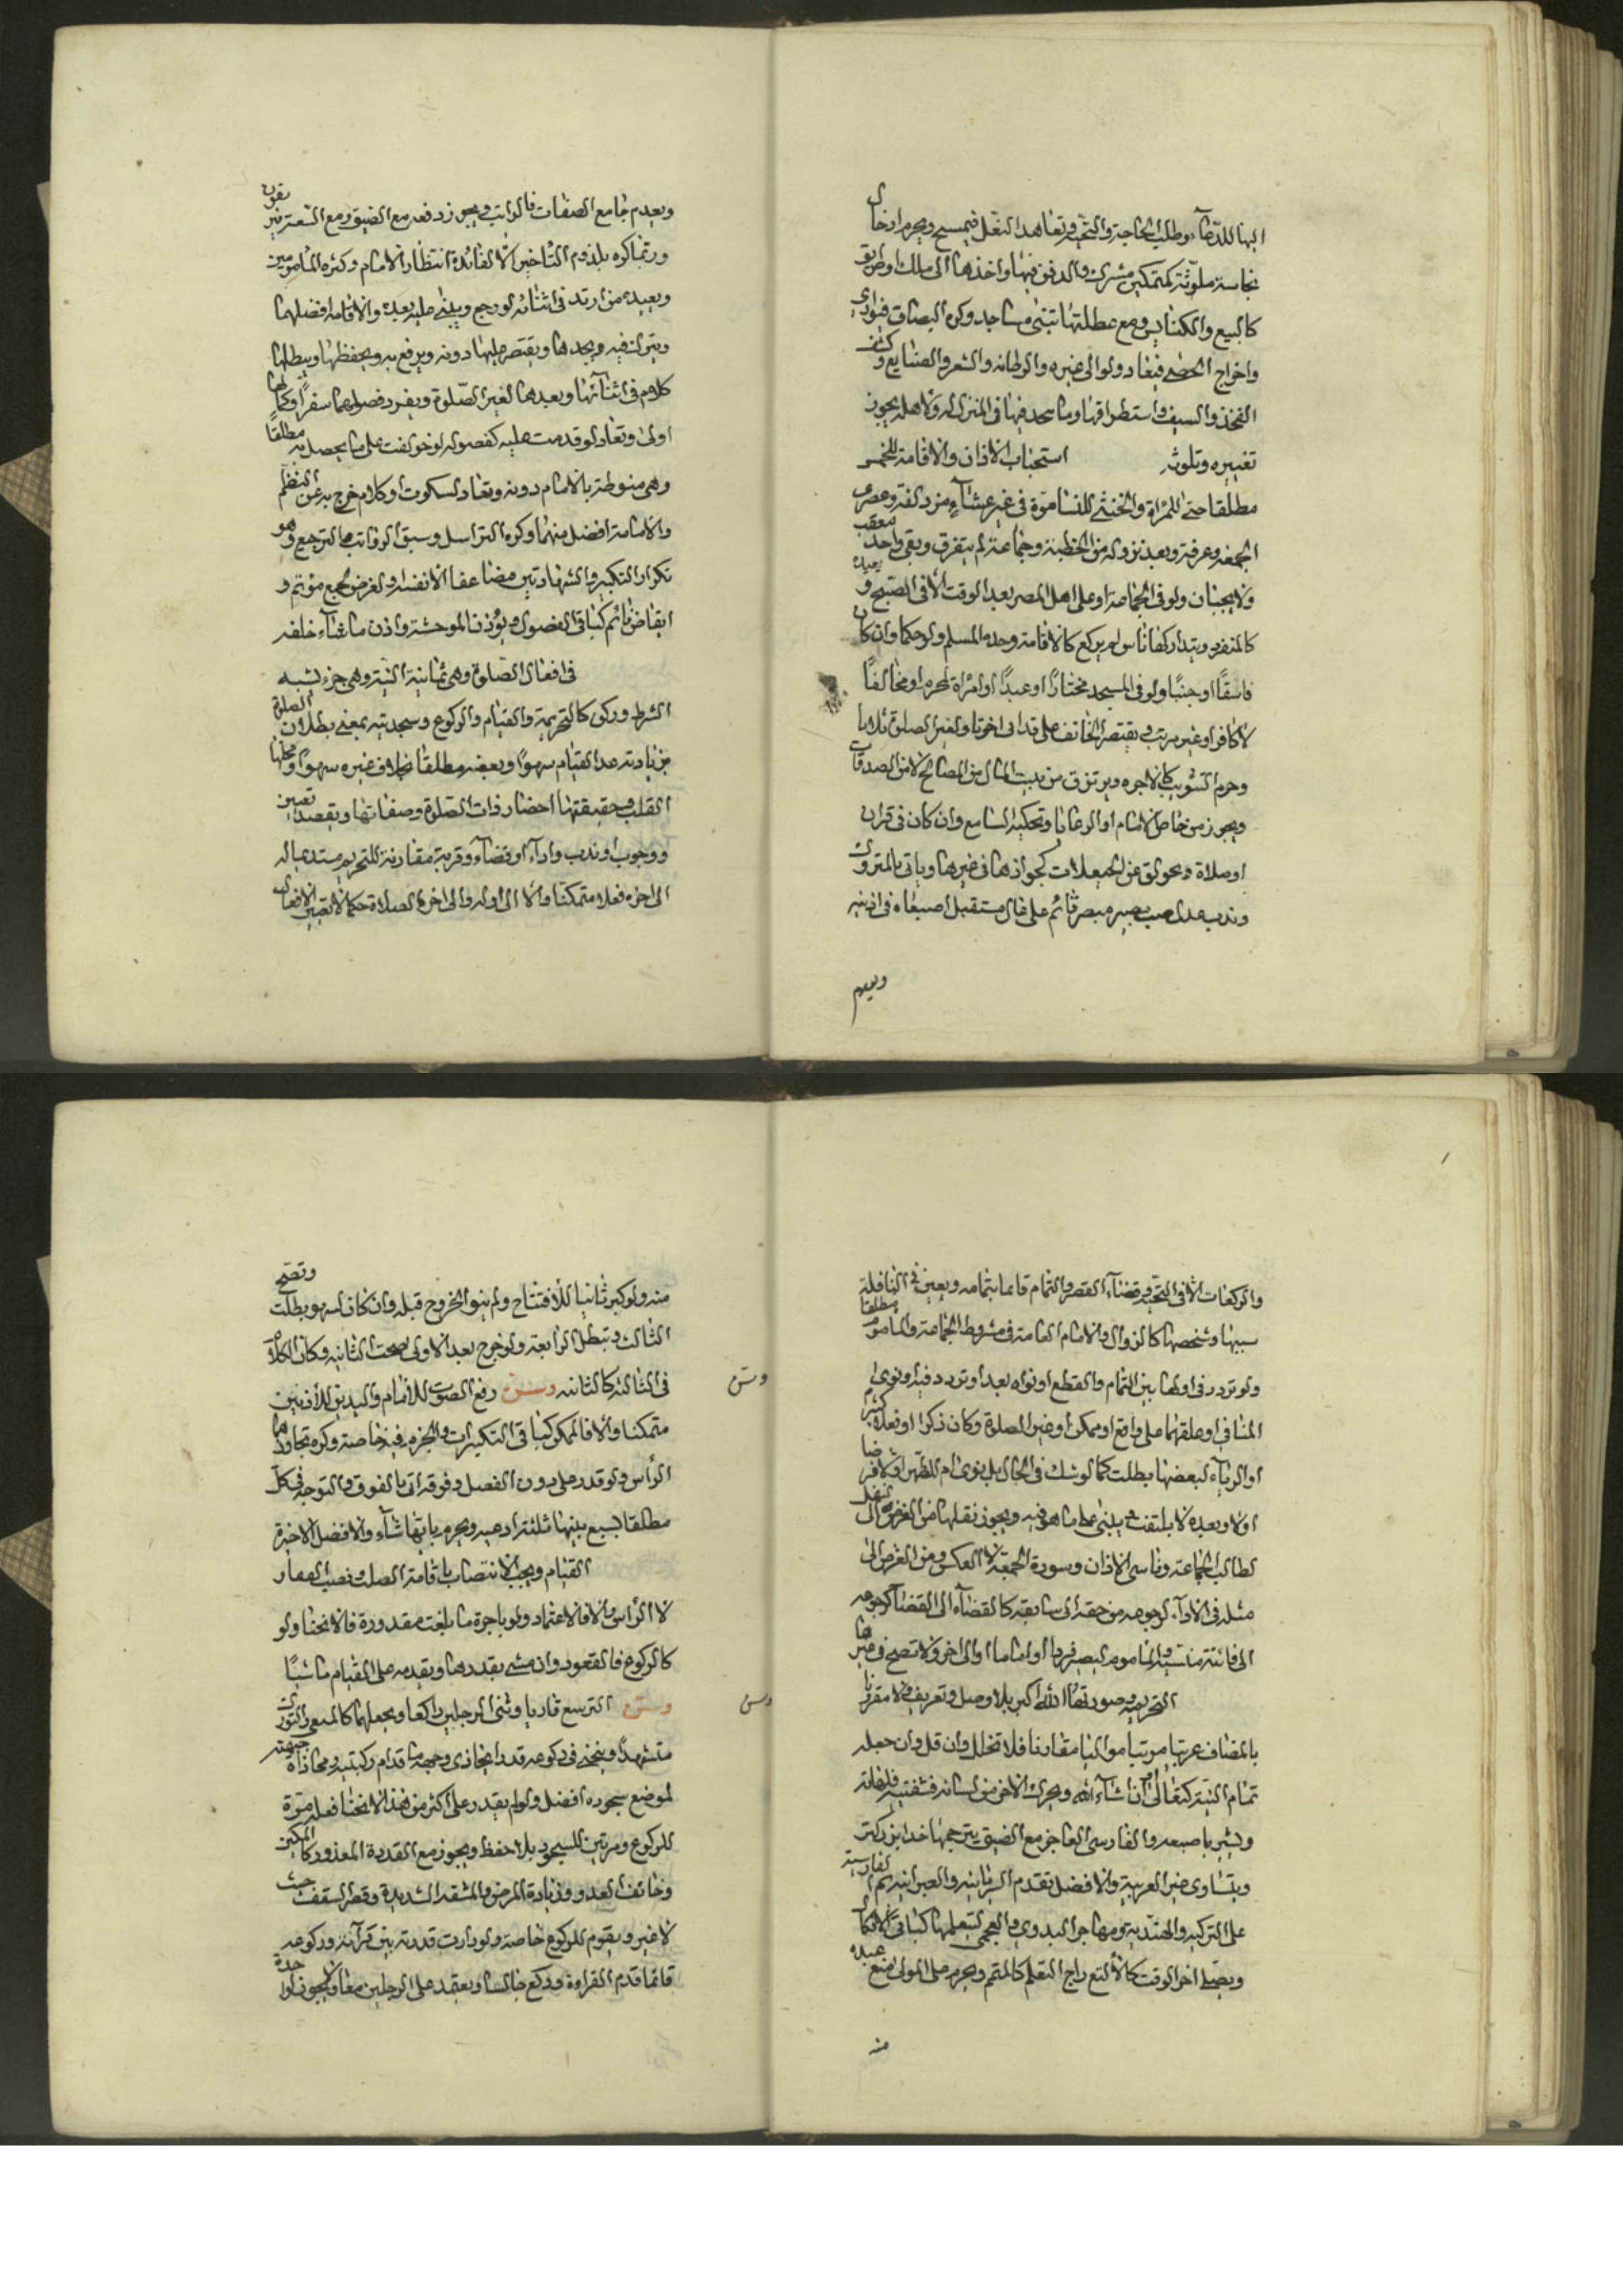 اليها للدعاء وطلب الحاجة والتحية وتعاهد النعل فيمسح ويحرم ادخال
نجاسة ملوثة كتمكين مشرك والدفن فيها واخذها الى ملك او طريق
كالبيع والكنايس ومع عطلتها تبنى مساجد وكره البصاق فيوارى
واخراج الحصى فيعاد ولو الى غيره والرطانه والشعر والصنايع وكشف
الفخذ والسيف واستطراقها وما سجد فيها في المنزل له ولاهله يجوز
تغييره وتلوثه استحباب الاذان والاقامة للخمس
مطلقا حتى للمراة والخنثى للنساء مرة في غير عشاء مزدلفة وعصرى
الجمعة وعرفة وبعد نزوله من الخطبة وجماعة لم يتفرق وبقى واحد معقب
ولا يجبان ولو في الجماعة او على اهل المصر بعد الوقت الا في الصبح ويعيده
كالمنفرد ويتداركها ناس لم يركع كالاقامة وحدها المسلم ولو حكما وان كان
فاسقًا او جنبًا ولو في المسجد مختارًا او عبدًا او امراة لمحرم او مخالفًا
لا كافر او غير مرتب ويقتصر الخائف على قد الى اخرها ولغير الصلوة ثلاها
وحرم التثويب كالاجره ويرتزق من بيت المال من المصالح لا من الصدقات
ويجوز من خاص الامام او الرعايا وتحكيه السامع وان كان في قران
او صلاة ويحولق عن الحيعلات كجوازها في غيرها وياتى بالمتروك
وندب عدل صيت بصير مبصر قائم على عال مستقبل اصبعاه في اذنيه
ويعدم
ويعدم جامع الصفات فالراتب ويجوز دفعه مع الضيق ومع السعة يترتبون
وربما كره بلزوم التاخير الا لفائدة انتظار الامام وكثرة المامومين
ويعيده من ارتد في اثنائه لو رجع ويبنى عليه بعده والاقامة افضلهما
ويترك فيه ويحدها ويقتصر عليها دونه ويرفع به ويخفظها ويبطلها
كلام في اثنائها ويعيدها لغير الصلوة ويفرد فصولهما سفرًا وكمالها
اولى وتعاد لو قدمت عليه كفصوله لو خولفت على ما يحصل به مطلقا
وهي منوطة بالامام دونه وتعاد لسكوت او كلام خرج به عن النظم
والامامة افضل منهما وكره التراسل وسبق الرواتب والترجيع وهو
تكرار التكبير والشهادتين مضاعفا الا نفسه ولغرض لجمع مؤتم و
ايقاظ نائم كباقى الفصول ويؤذن الموحشة واذن ما شاء خلفه
في افعال الصلوة وهي ثمانية النية وهي جزء يشبه
الشرط وركن كالتحريمة والقيام والركوع وسجدتيه بمعنى بطلان الصلوة
بزيادته عدا القيام سهوًا وبعضه مطلقا بخلاف غيره سهوًا ومحلها
القلب وحقيقتها احضار ذات الصلوة وصفاتها ويقصد تعيين
ووجوب او ندب واداء او قضاء وقربة مقارنة للتحريم مستدعيا له
الى اخره فعلا متمكنا والا الى اوله والى اخر الصلاة حكما لا تعيين الافعال
والركعات الا في التخيير وقضاء القصر والتمام فاعما بتمامه ويعين في النافلة
سببها وشخصها كالزوال والامام العامة في مشروط الجماعة والماموم مطلقا
ولو تردد في اولها بين التمام والقطع او نواه بعد او تردد فيه او نوى
المنافي او علقهما على واقع او ممكن او غير الصلوة وكان ذكرا او فعلا كثيرا
او الرياء لبعضها بطلت كما لو شك في الحال بل نوى ام للظهر او لا فرضا
او لا وبعده لا يلتفت ويبنى على ما هو فيه ويجوز نقلها من الفرض الى نفل
لطالب الجماعة وناسى الاذان وسورة الجمعة لا العكس ومن الفرض الى
مثله في الاداء لرجوعه من حقه الى سابقه كالقضاء الى القضاء كرجوعه
الى فائتة منسية والماموم ليصير فردا او اماما او الى اخر ولا تصح في غيرها
التحريمه وصورتها الله اكبر بلا وصل وتعريف ولا مقرنا
بالمضاف عربيا مرتبا مواليا مقارنا فلا تخلل وان قل وان جعله
تمام النية كتعالى او ان شاء الله ويحرك الاخرس لسانه فشفتيه فلهاته
ويشير باصبعه والفارسى العاجز مع الضيق يترجمها خدا بزركتر
ويتساوى غير العربية والافضل تقدم السريانيه والعبرانيه ثم الفارسية
على التركيه والهنديه ومهاجر البدوي والعجمى لتعلمها كباقى الاذكار
ويصلى اخر الوقت كالالثغ راج التعلم كالمتمم ويحرم على المولى منع عبده
منه
منه ولو كبر ثانيا للافتتاح ولم ينو الخروج قبله وان كان لسهو بطلت وتصح
الثالث وتبطل الرابعة ولو خرج بعد الاولى صحت الثانيه وكان الكلام
في الثالثة كالثانيه وسن رفع الصوت للامام واليدين للاذنين
وسن
متمكنا والا فالممكن كباقى التكبيرات والجزم فيه خاصة وكره تجاوزها
الراس ولو قدر على دون الفصل وفوقه اتى بالفوق والتوجه في كل
مطلقا بسبع بينها ثلثة ادعيه ويحرم بايها شاء والافضل الاخيرة
القيام ويجب الانتصاب باقامة الصلب ونصب الفقار
لا الراس والا فالاعتماد ولو باجرة ما بلغت مقدورة فالانحنا ولو
كالركوع فالقعود وان مشى بقدرها ويقدمه على القيام ماشيًا
وسن التربيع قاريا وثنى الرجلين راكعا ويجعلهما كالمقعى والتورك
وسن
متشهدًا وينحنى في ركوعه قدرا يحاذى وجهه ما قدام ركبتيه ومحاذاة جبهته
لموضع سجوده افضل ولو لم يقدر على اكثر من هذا الانحنا فعله مرة
للركوع ومرتين للسجود بلا حفظ ويجوز مع القدرة المعذور كالمكين
وخائف العدو وزيادة المرض والمشقه الشديدة وقصر السقف حيث
لا غير ويقوم للركوع خاصة ولو دارت قدرته بين قرآنه وركوعه
قائما قدم القراءة وركع جالسا ويعتمد على الرجلين معا ولا يجوز لواحدة